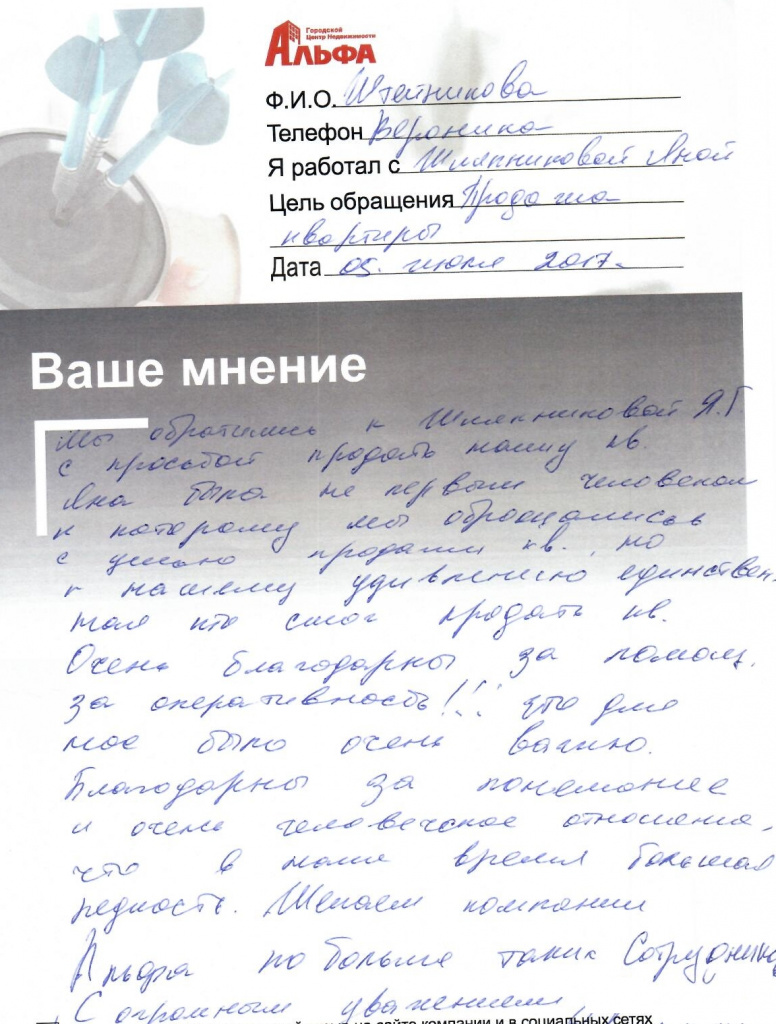 Городской
Центр Недвижимости
АЛЬФА
Ф.И.О. Штейникова
Телефон Вероника
Я работал с Шляпниковой Яной
Цель обращения Продажа
квартиры
Дата 05. июля 2017г.
Ваше мнение
Мы обратились к Шляпниковой Я.Г
с просьбой продать нашу кв.
Яна была не первым человеком
к которому мы обращались
с целью продажи кв., но
к нашему удивлению единствен-
ная кто смог продать кв.
Очень благодарны за помощ,
за оперативность!!! это для
нас было очень важно.
Благодарны за понемание
и очень человеческое отношение,
что в наше время большая
редкость. Желаем компании
Альфа по больше таких Сотрудников
С огромным уважением
на сайте компании и в социальных сетях